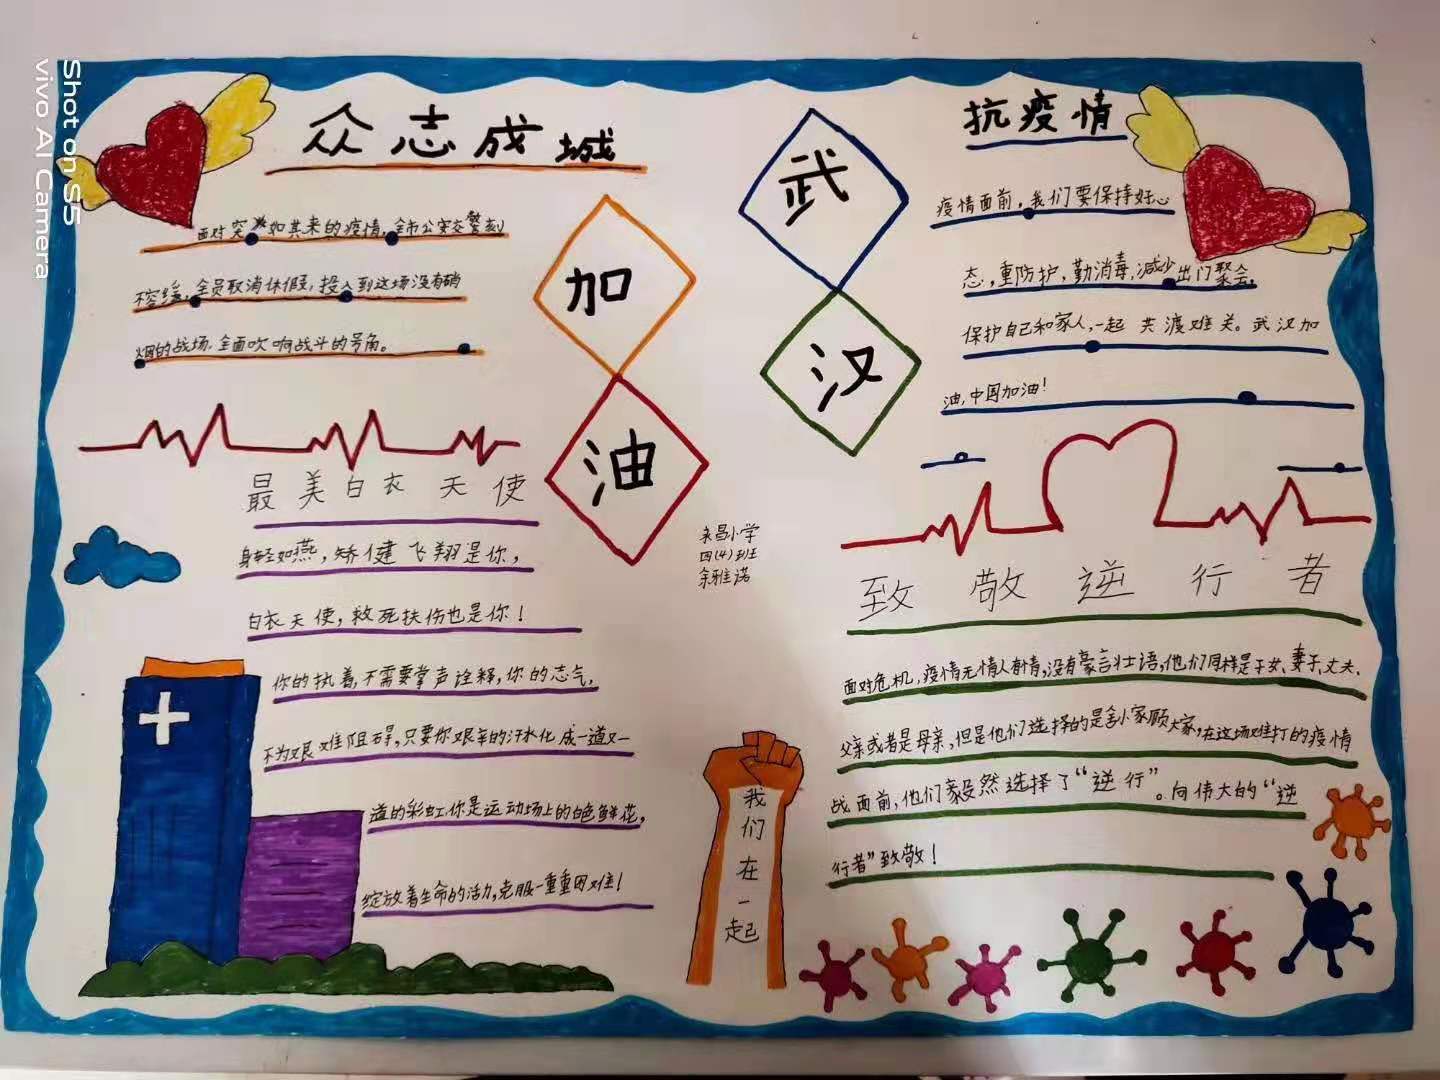 Shot on S5
vivo AI Camera
众志成城
面对突如其来的疫情,全市公安交警刻
不容缓,全员取消休假,投入到这场没有硝
烟的战场.全面吹响战斗的号角。
加
油
武
汉
抗疫情
疫情面前,我们要保持好心
态,重防护,勤消毒,减少出门聚会,
保护自己和家人,一起 共渡难关。武汉加
油,中国加油!
最美白衣天使
身轻如燕,矫健飞翔是你,
白衣天使,救死扶伤也是你!
你的执着,不需要掌声诠释,你的志气,
不为艰难阻碍,只要你艰辛的汗水化成一道又一
道的彩虹.你是运动场上的白色鲜花,
绽放着生命的活力,克服一重重困难!
永昌小学
四(4)班
余雅诺
致敬逆行者
面对危机,疫情无情人有情,没有豪言壮语,他们同样是子女、妻子、丈夫、
父亲或者是母亲,但是他们选择的是舍小家顾大家,在这场难打的疫情
战面前,他们毅然选择了“逆行”。向伟大的“逆
行者”致敬!
我们在一起